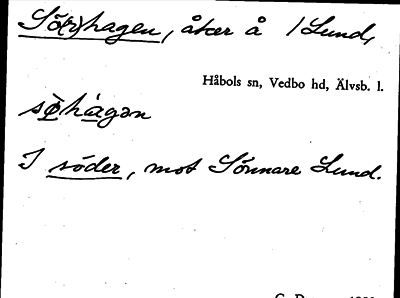 Sö(r)hagen, åker å /Lund,
Håbols sn, Vedbo hd, Älvsb. l.
sø̀hàgən
I söder, mot Sönnare Lund.